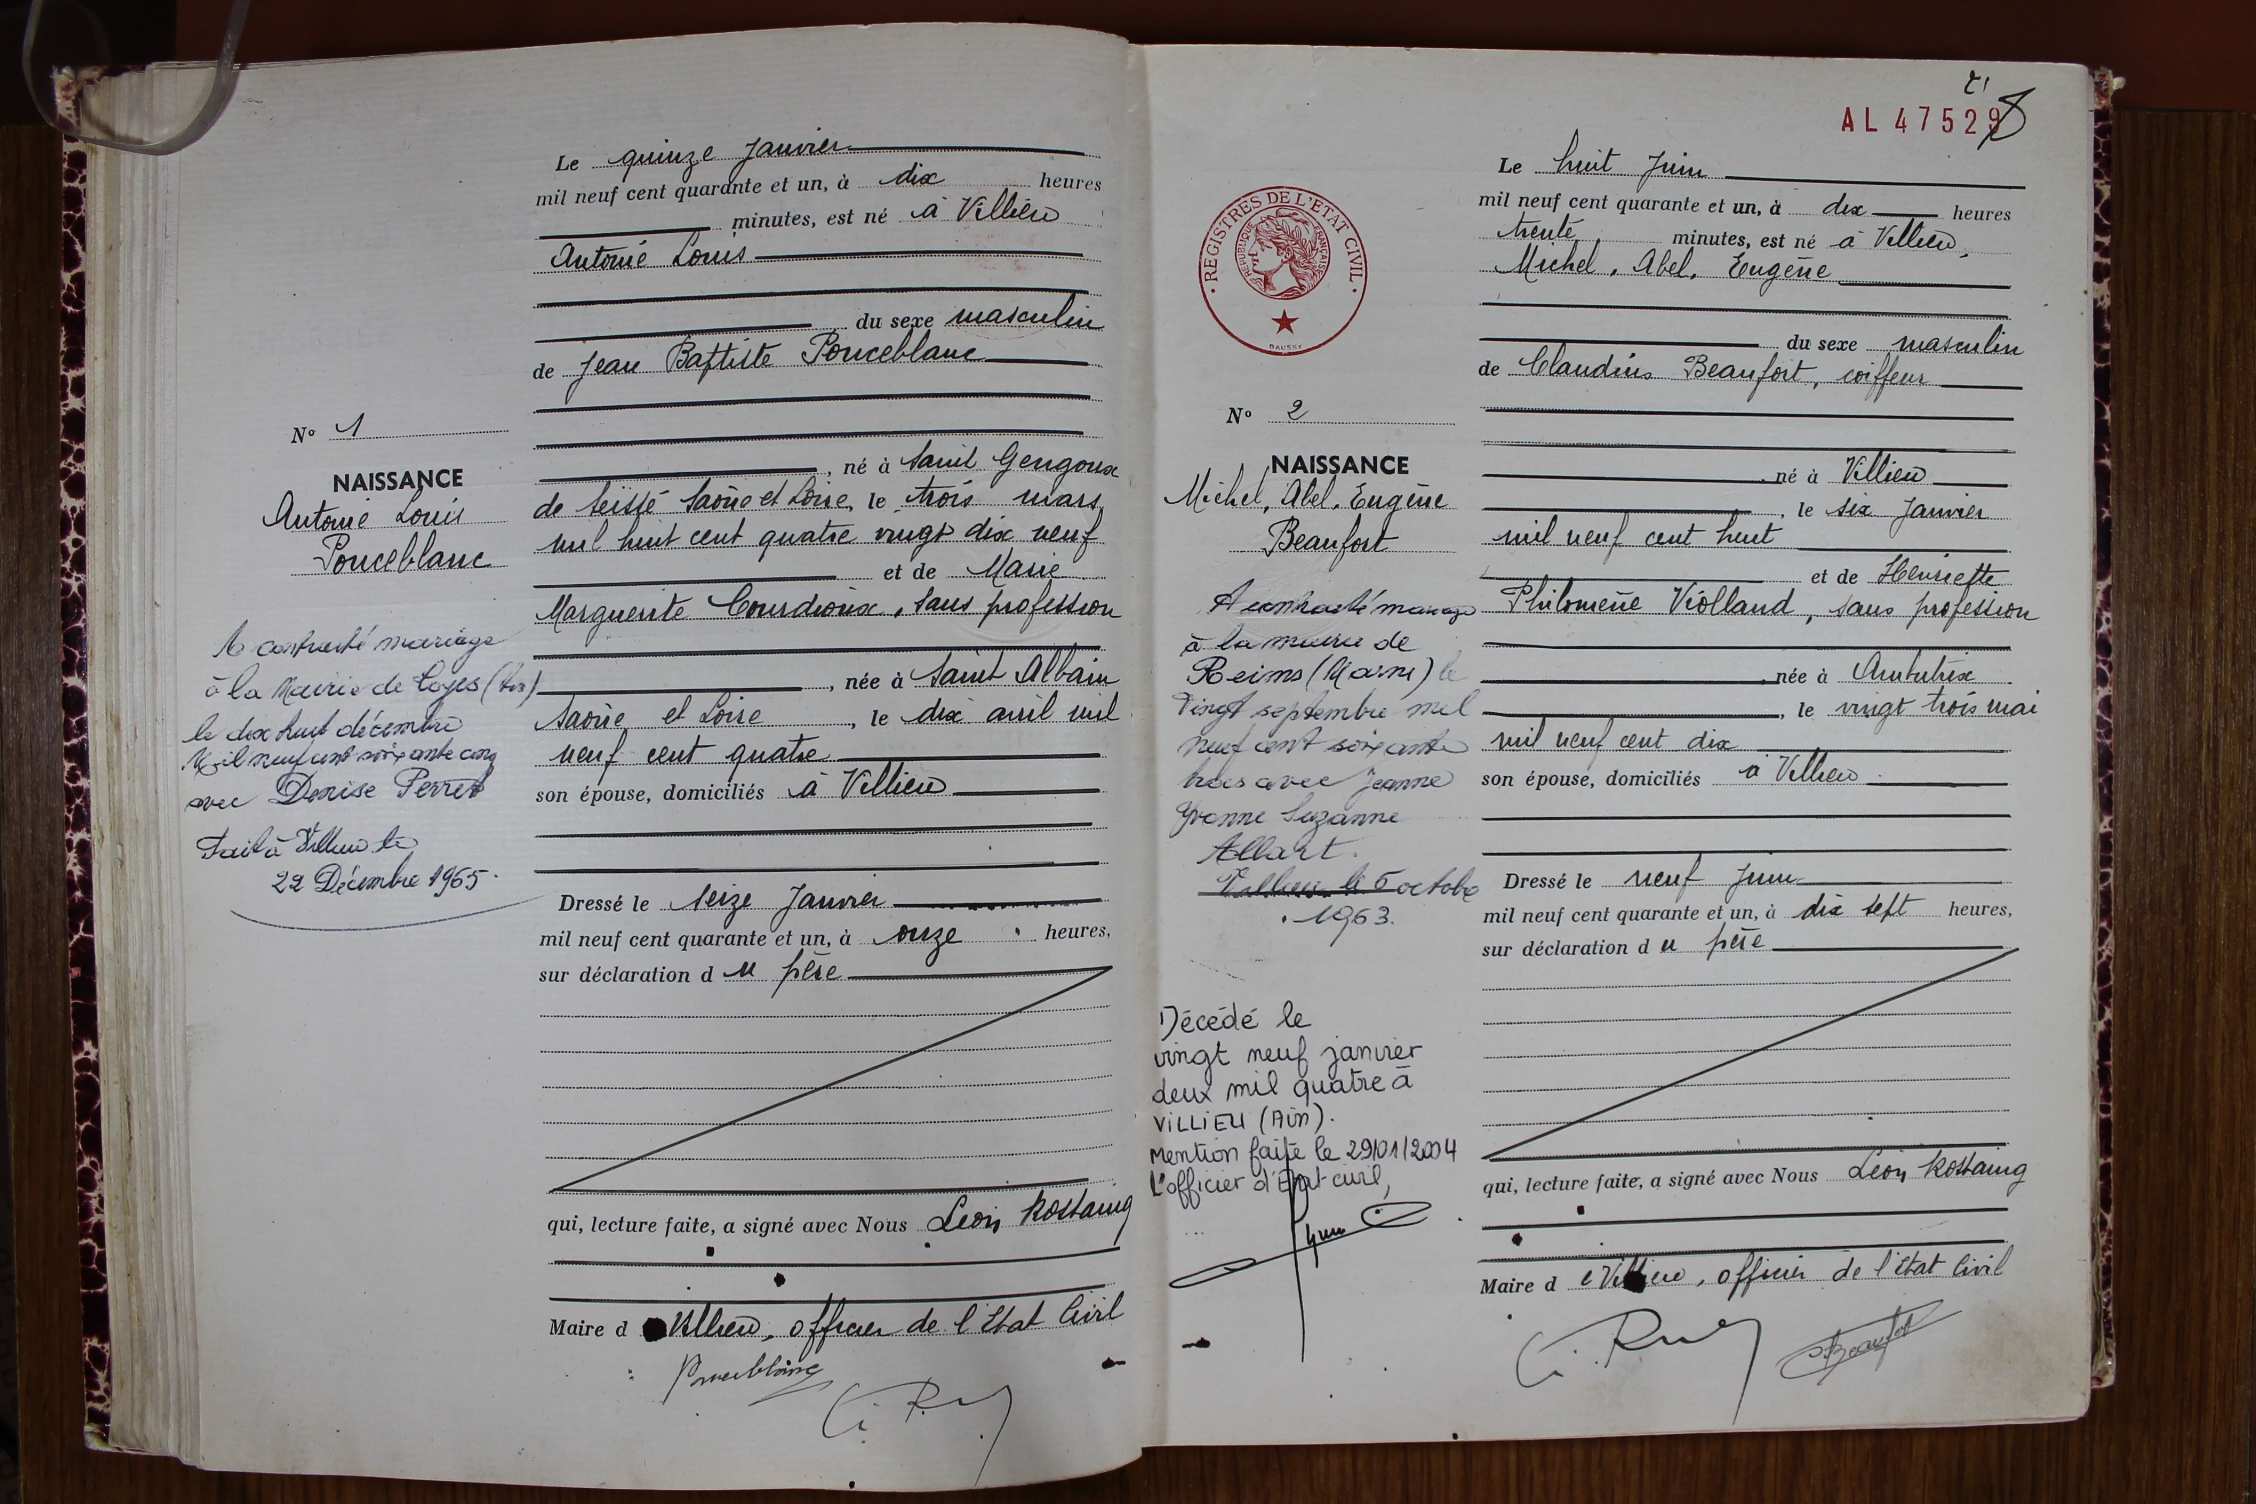 Le quinze Janvier
mil neuf cent quarante et un, à dix heures
minutes, est né à Villieu
Antoine Louis
du sexe masculin
de Jean Baptiste Ponceblanc
N° 1
, né à Saint Gengoux
NAISSANCE
de Scissé Saône et Loire, le trois mars
Antoine Louis
mil huit cent quatre vingt dix neuf
Ponceblanc
et de Marie
Marguerite Courdioux, sans profession
A contracté mariage
à la Mairie de Loyes (Ain)
le dix huit décembre
Mil neuf cent soixante cinq
avec Denise Perret
Fait à Villieu le
22 Décembre 1965.
, née à Saint Albain
Saône et Loire, le dix avril mil
neuf cent quatre
son épouse, domiciliés à Villieu
Dressé le seize Janvier
mil neuf cent quarante et un, à onze heures,
sur déclaration du père
qui, lecture faite, a signé avec Nous Léon Rostaing
Maire d Villieu, officier de l'Etat Civil
Ponceblanc
21
AL 47529
8
REGISTRES DE L'ETAT CIVIL
REPUBLIQUE FRANÇAISE
DAUSSY
Le huit Juin
mil neuf cent quarante et un, à dix heures
trente minutes, est né à Villieu,
Michel, Abel, Eugène
du sexe masculin
de Claudius Beaufort, coiffeur
N° 2
NAISSANCE
né à Villieu
Michel, Abel, Eugène
, le six Janvier
Beaufort
mil neuf cent huit
et de Henriette
Philomène Violland, sans profession
A contracté mariage
à la mairie de
Reims (Marne) le
vingt septembre mil
neuf cent soixante
trois avec Jeanne
Yvonne Suzanne
Allart.
Villieu le 5 octobre
1963.
née à Ambutrix
, le vingt trois mai
mil neuf cent dix
son épouse, domiciliés à Villieu
Dressé le neuf Juin
mil neuf cent quarante et un, à dix sept heures,
sur déclaration du père
Décédé le
vingt neuf janvier
deux mil quatre à
VILLIEU (Ain).
Mention faite le 29/01/2004
L'officier d'Etat-civil,
qui, lecture faite, a signé avec Nous Léon Rostaing
Maire de Villieu, officier de l'Etat Civil
Beaufort